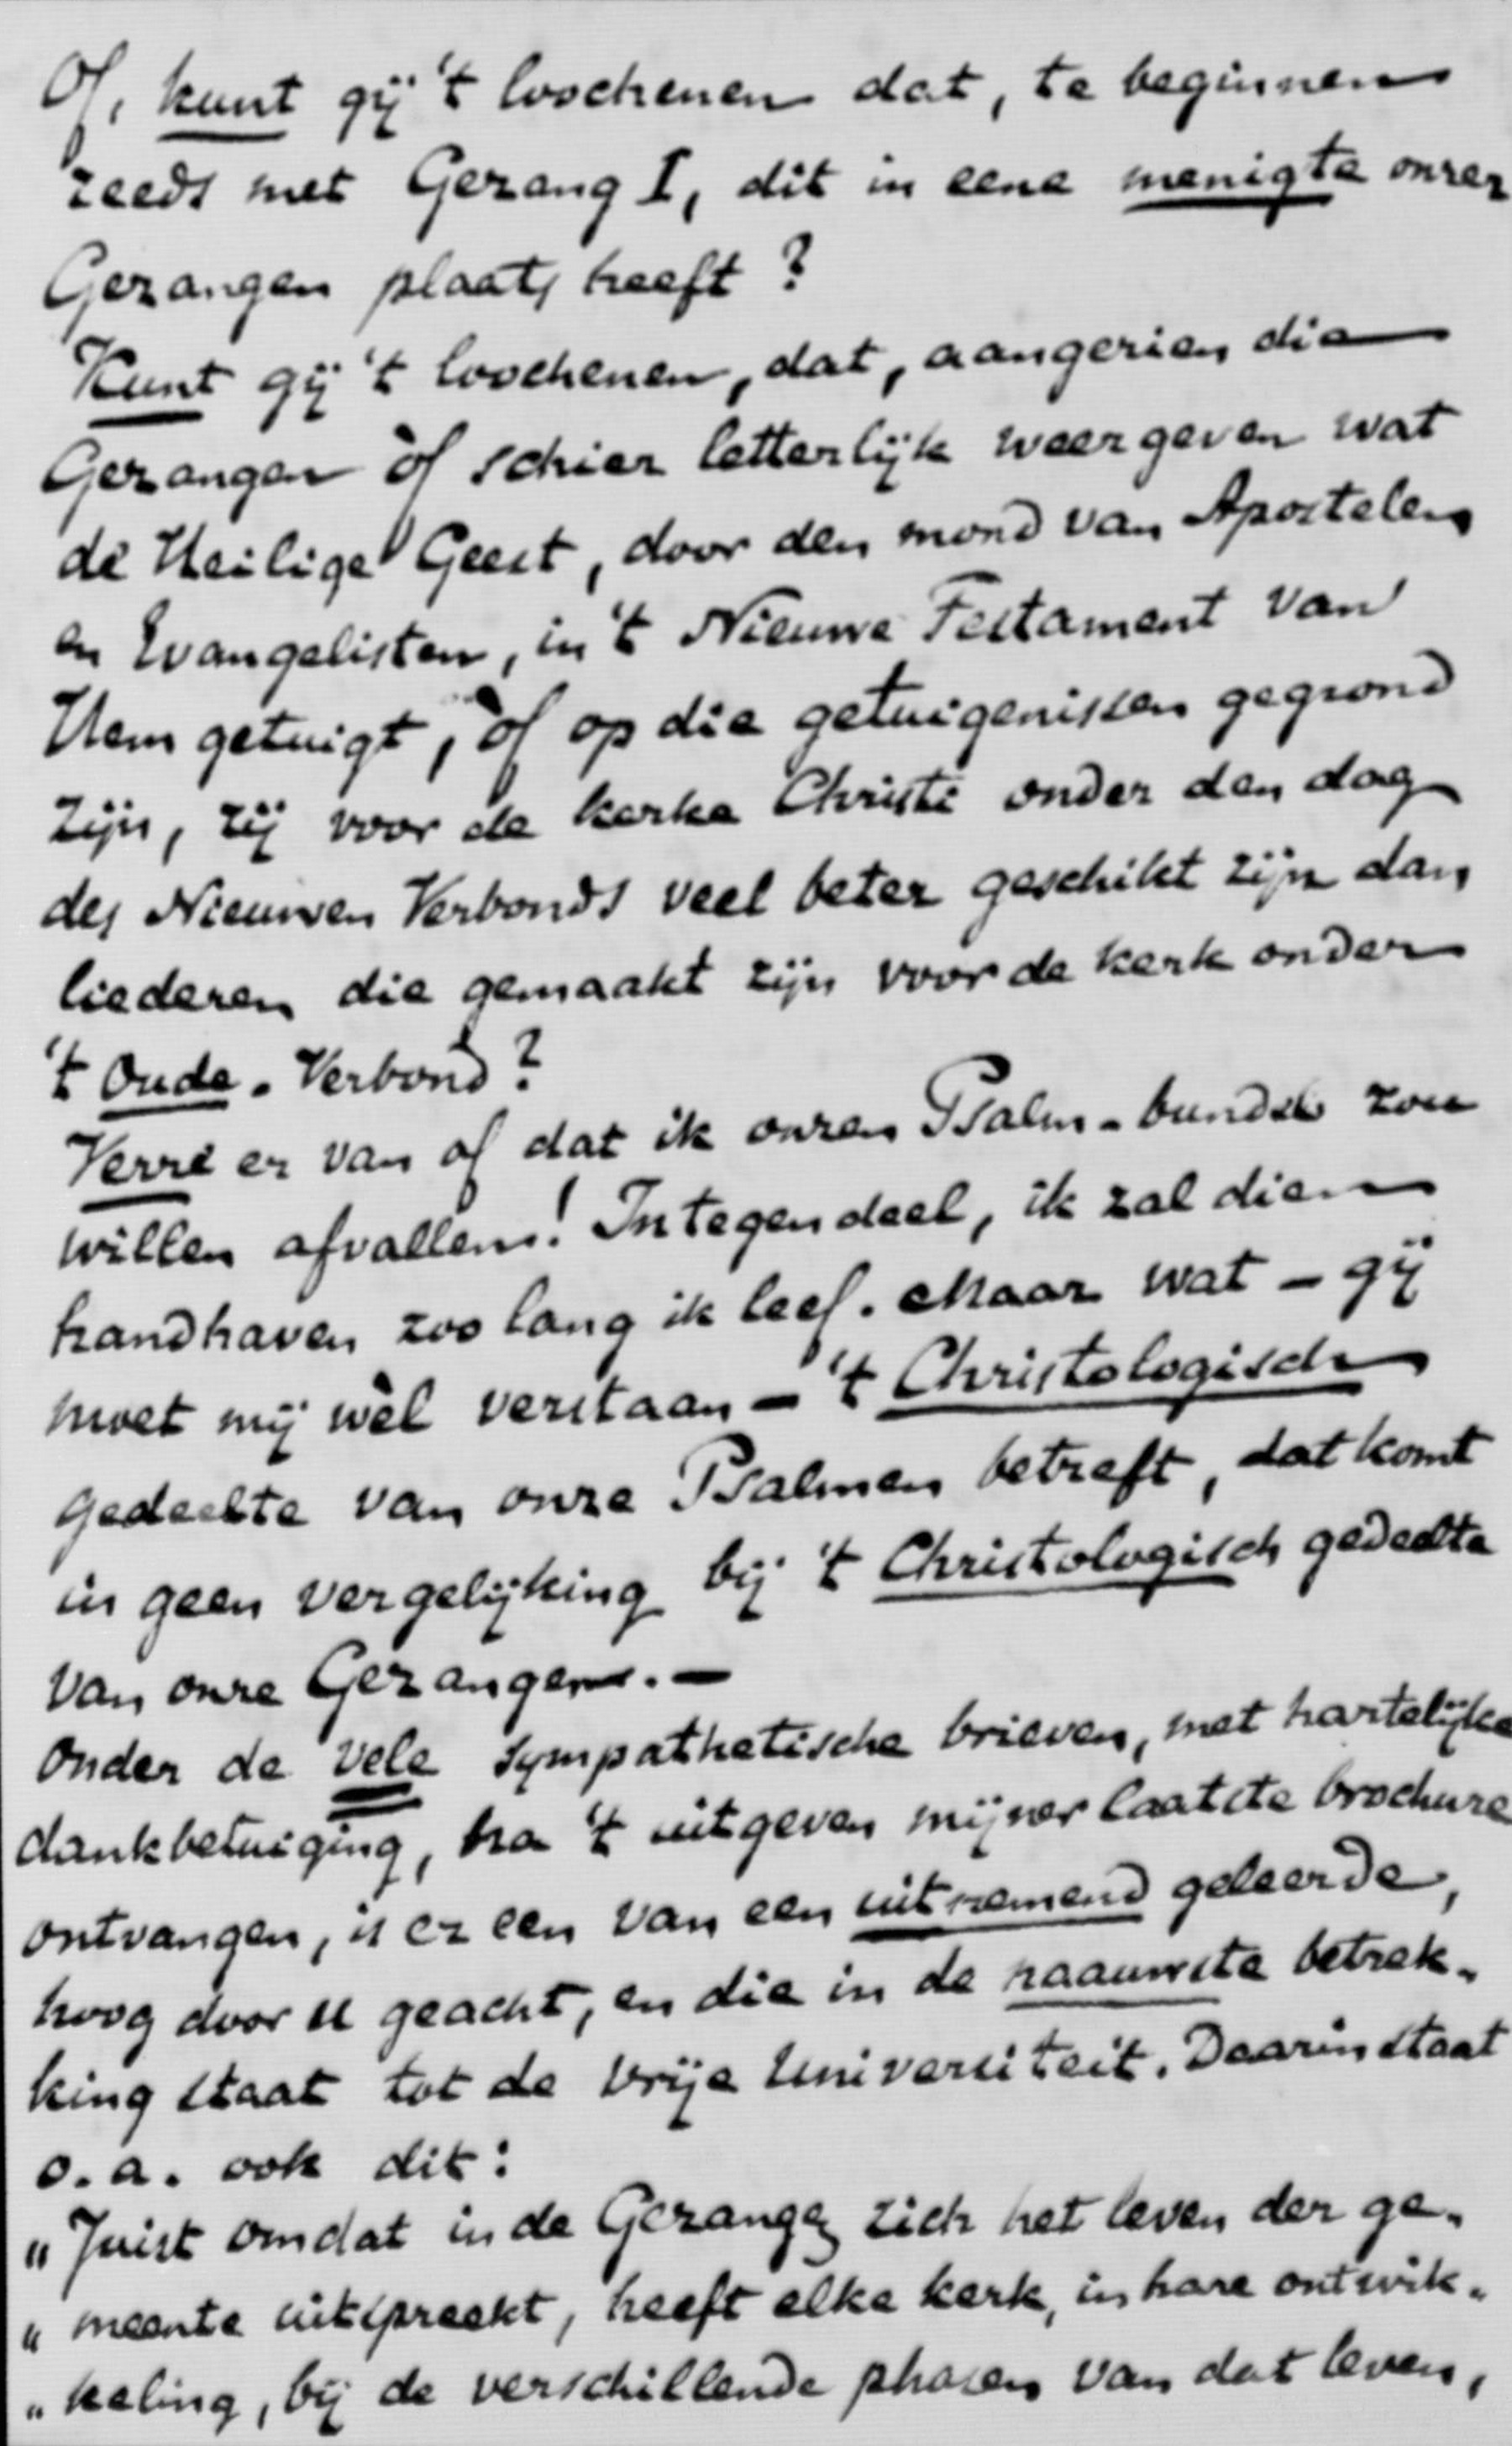 Of, kunt gij 't loochenen dat, te beginnen
reeds met Gezang I, dit in eene menigte onzer
Gezangen plaats heeft?
Kunt gij 't loochenen, dat, aangezien die
Gezangen òf schier letterlijk weergeven wat
de Heilige Geest, door den mond van Apostelen
en Evangelisten, in 't Nieuwe Testament van
Hem getuigt, òf op die getuigenissen gegrond
zijn, zij voor de kerke Christi onder den dag
des Nieuwen Verbonds veel beter geschikt zijn dan
liederen die gemaakt zijn voor de kerk onder
't Oude-Verbond?
Verre er van af dat ik onzen Psalm-bundel zou
willen afvallen! Integendeel, ik zal dien
handhaven zoo lang ik leef. Maar wat - gij
moet mij wèl verstaan - 't Christologisch
gedeelte van onze Psalmen betreft, dat komt
in geen vergelijking bij 't Christologisch gedeelte
van onze Gezangen. -
Onder de vele sympathetische brieven, met hartelijke
dankbetuiging, na 't uitgeven mijner laatste brochure
ontvangen, is er een van een uitnemend geleerde,
hoog door U geacht, en die in de naauwste betrek-
king staat tot de Vrije Universiteit. Daarin staat
o.a. ook dit:
"Juist omdat in de Gezangen zich het leven der ge-
"meente uitspreekt, heeft elke kerk, in hare ontwik-
"keling, bij de verschillende phasen van dat leven,